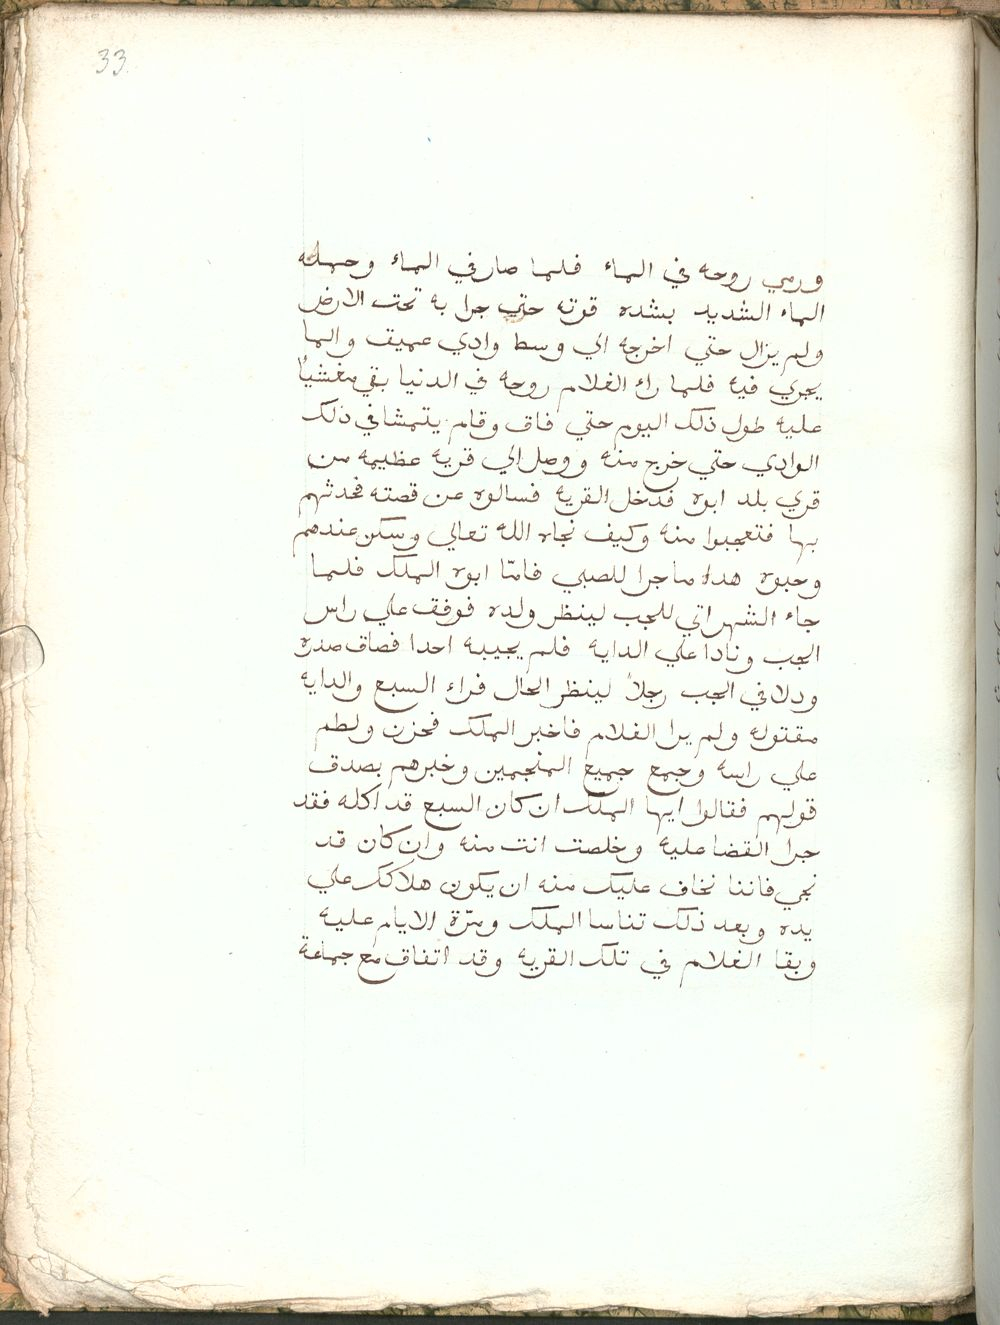 33
ورمي روحه في الماء فلما صار في الماء وحمله
الماء الشديد بشده قوته حتي جرا به تحت الارض
ولم يزال حتي اخرجه الي وسط وادي عميق والما
يجري فيه فلما راء الغلام روحه في الدنيا بقي مغشياً
عليه طول ذلك اليوم حتي فاق وقام يتمشا في ذلك
الوادي حتي خرج منه ووصل الي قريه عظيمه من
قري بلد ابوه فدخل القريه فسالوه عن قصته فحدثهم
بها فتعجبوا منه وكيف نجاه الله تعالي وسكن عندهم
وحبوه هدا ما جرا للصبي فامّا ابوه الملك فلما
جاء الشهر اتي للجب لينظر ولده فوقف علي راس
الجب ونادا علي الدايه فلم يجيبه احدا فضاق صدره
ودلا في الجب رجلاً لينظر الحال فراء السبع والدايه
مقتوله ولم يرا الغلام فاخبر الملك فحزن ولطم
علي راسه وجمع جميع المنجمين وخبرهم بصدق
قولهم فقالوا ايها الملك ان كان السبع قد اكله فقد
جرا القضا عليه وخلصت انت منه وان كان قد
نجي فاننا نخاف عليك منه ان يكون هلاكك علي
يده وبعد ذلك تناسا الملك ومرّة الايام عليه
وبقا الغلام في تلك القريه وقد اتفاق مع جماعة